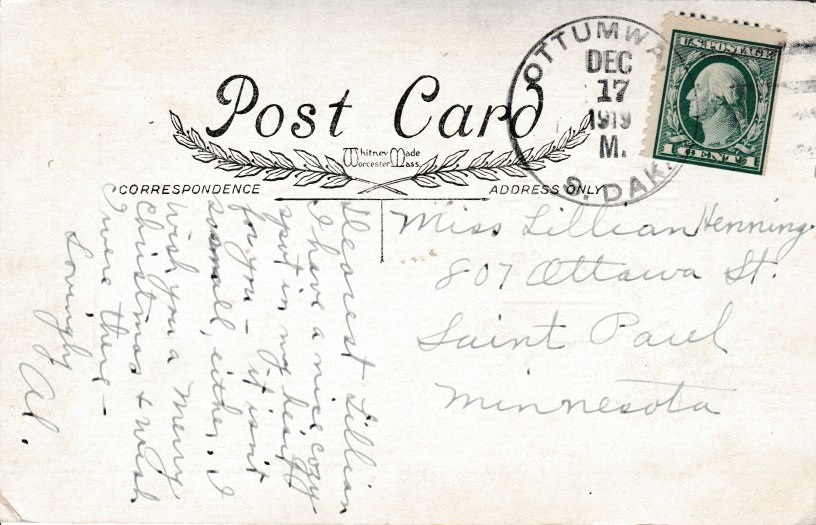 Post Card
Whitney Made
Worcester Mass.
CORRESPONDENCE
ADDRESS ONLY
OTTUMWA
DEC
17
1919
M.
S. DAK.
U.S. POSTAGE
1 CENT 1
Miss Lillian Henning
807 Ottawa St.
Saint Paul
Minnesota
Dearest Lillian
I have a nice cozy
spot in my heart
for you – it isn't
so small, either. I
wish you a merry
christmas & wish
I were there –
Lovingly
Al.